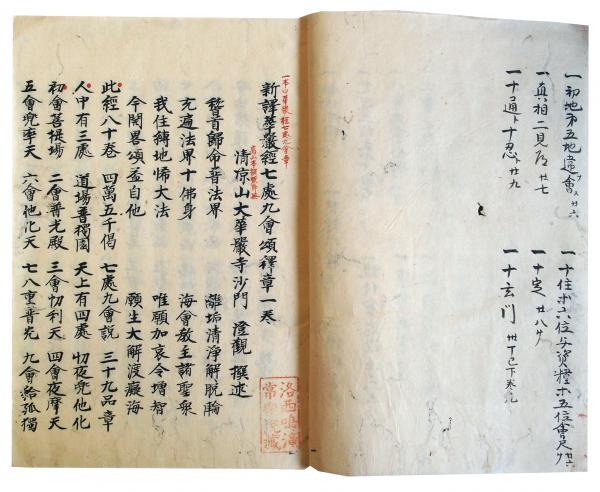 一初地ホ五地違會 廿六
一真相二見 廿七
一十通卜十忍 廿九
一十住ホ六位与資糧ホ五位會尺 廿六
一十定 廿八
一十玄門 卅
新譯華嚴經七處九會頌釋章一卷
清凉山大華嚴寺沙門 澄觀 撰述
稽首歸命普法界 離垢清淨解脫輪
充遍法界十佛身 海會教主諸聖衆
我住縛地悕大法 唯願加哀令增智
今開畧頌益自他 願生大解渡癡海
此經八十卷 四萬五千偈 七處九會說 三十九品章
人中有三處 道場普獨園 天上有四處 忉夜兜他化
初會菩提場 二會普光殿 三會忉利天 四會夜摩天
五會兜率天 六會他化天 七八重普光 九會給孤獨
洛西鳴瀧
常院藏